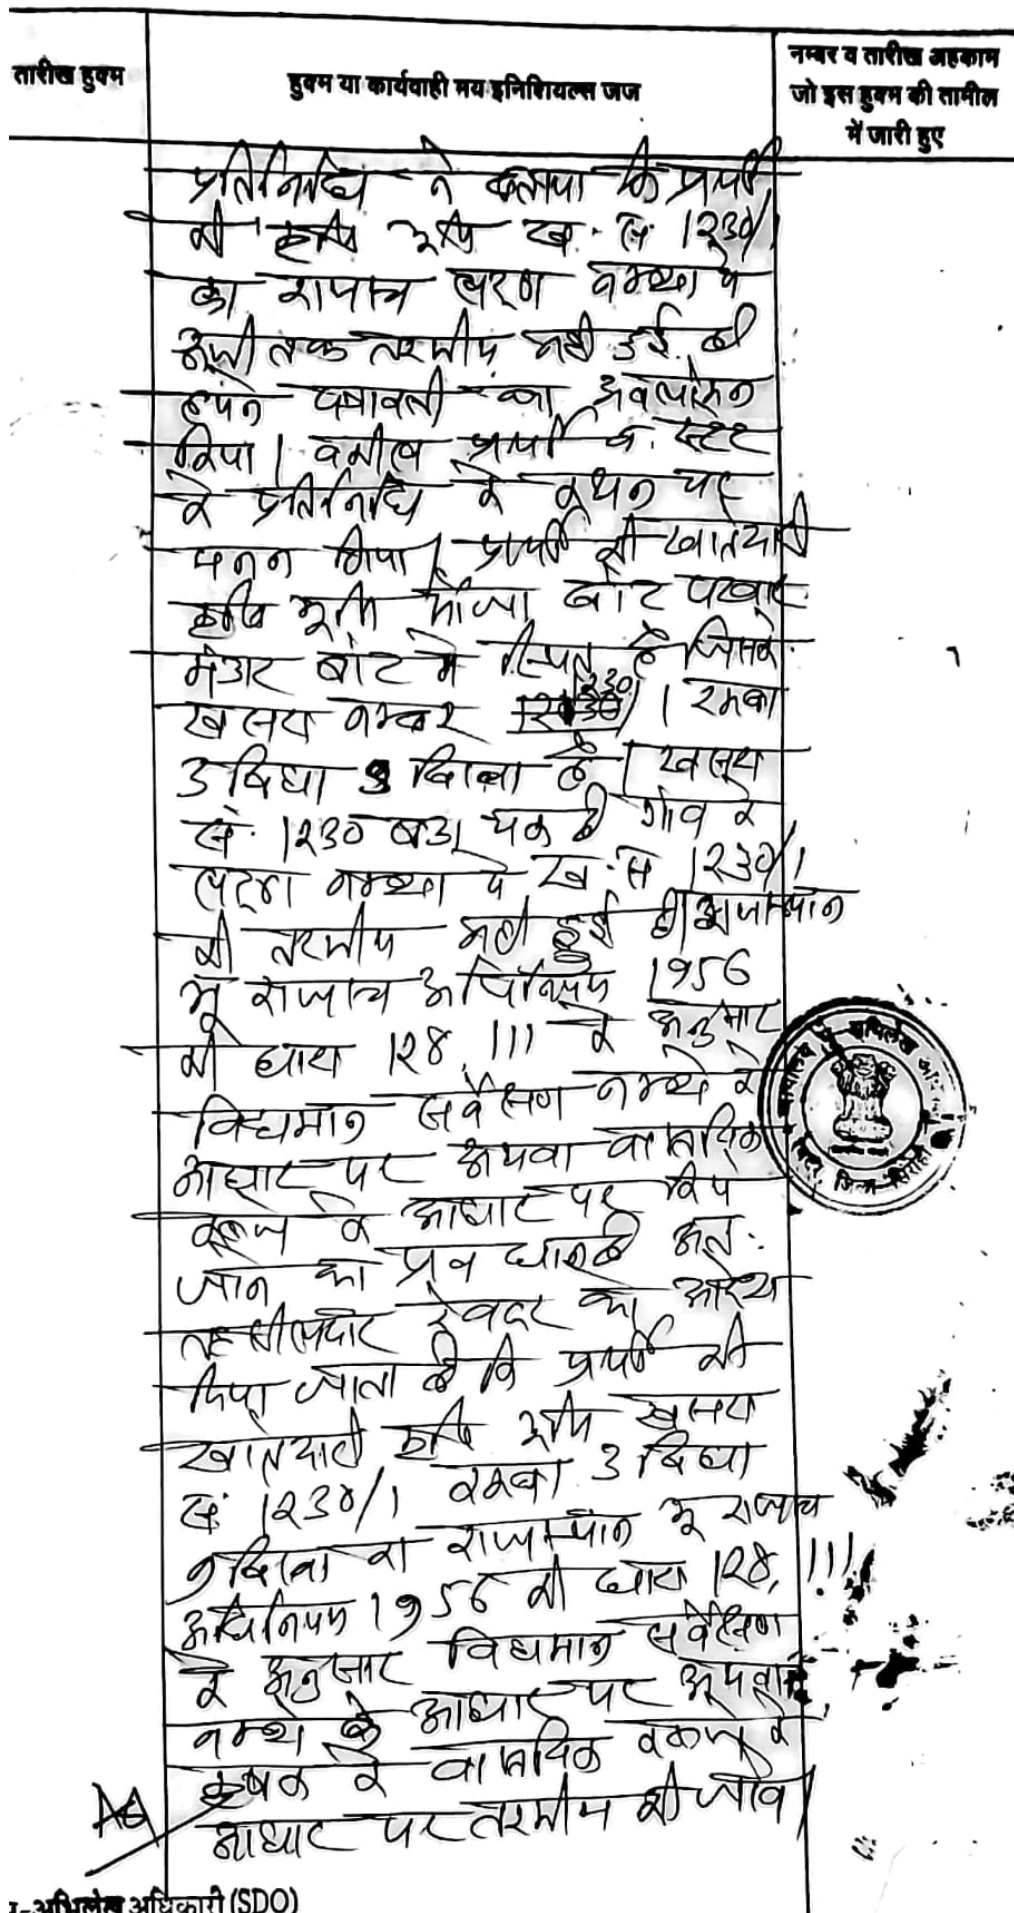 तारीख हुक्म
हुक्म या कार्यवाही मय इनिशियल्स जज
नम्बर व तारीख अहकाम
जो इस हुक्म की तामील
में जारी हुए
प्रतिनिधि ने बताया कि प्रार्थी
की कृषि भूमि ख. सं 1230/1
का राजस्व नक्शा में
अभी तक तरमीम नही हुई है
हमने पत्रावली का अवलोकन
किया। वकील प्रार्थी व स्टेट
के प्रतिनिधि के कथन पर
मनन किया। प्रार्थी की खातेदारी
कृषि भूमि मौजा पटवार
मे स्थित है जिसके
खसरा नम्बर 1230/1 रकबा
3 बिघा 9 बिस्वा है। खसरा
सं. 1230 बडा चक है गांव के
नक्शा मे ख. सं 1230/1
की तरमीम नही हुई है। राजस्थान
भू राजस्व अधिनियम 1956
की धारा 128, 111 के अनुसार
विद्यमान सर्वेक्षण नक्शे के
आधार पर अथवा वास्तविक
कब्जे के आधार पर किये
जाने का प्रावधान है अतः
तहसीलदार रेवदर को आदेश
दिया जाता है कि प्रार्थी की
खातेदारी कृषि भूमि खसरा
सं 1230/1 रकबा 3 बिघा
9 बिस्वा का राजस्थान भू राजस्व
अधिनियम 1956 की धारा 128, 111
के अनुसार विद्यमान सर्वेक्षण
नक्शे के आधार पर अथवा
कृषक के वास्तविक कब्जे के
आधार पर तरमीम की जावे।
अभिलेख
जिला सिरोही
-अभिलेख अधिकारी (SDO)